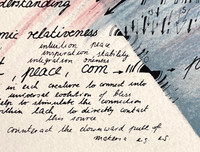 derstanding
mic relativeness
intuition peace
inspiration stability
integration oneness
, peace, com
in each creature to connect into
universal evolution of bliss
help to stimulate the connection
within each to directly contact
this source
counteract the downward pull of